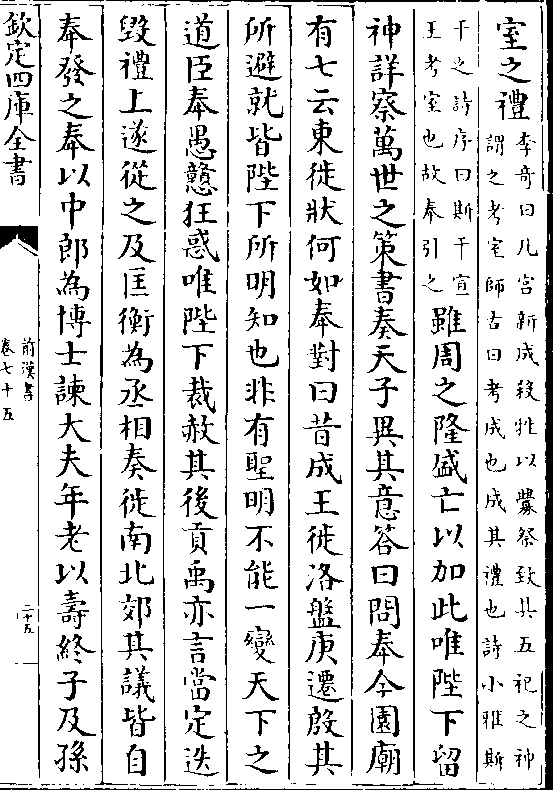 室之禮李奇曰凡宫新成殺牲以釁祭致其五祀之神謂之考室師古曰考成也成其禮也詩小雅斯
干之詩序曰斯干宣王考室也故奉引之雖周之隆盛亡以加此唯陛下留
神詳察萬世之策書奏天子異其意答曰問奉今園廟
有七云東徙狀何如奉對曰昔成王徙洛盤庚遷殷其
所避就皆陛下所明知也非有聖明不能一變天下之
道臣奉愚戇狂惑唯陛下裁赦其後貢禹亦言當定迭
毀禮上遂從之及匡衡為丞相奏徙南北郊其議皆自
奉發之奉以中郎為博士諫大夫年老以壽終子及孫
欽定四庫全書
前漢書
卷七十五
二十五